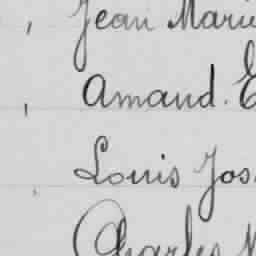 , Jean Marie
, Amand. E
, Louis Jos
Charles M